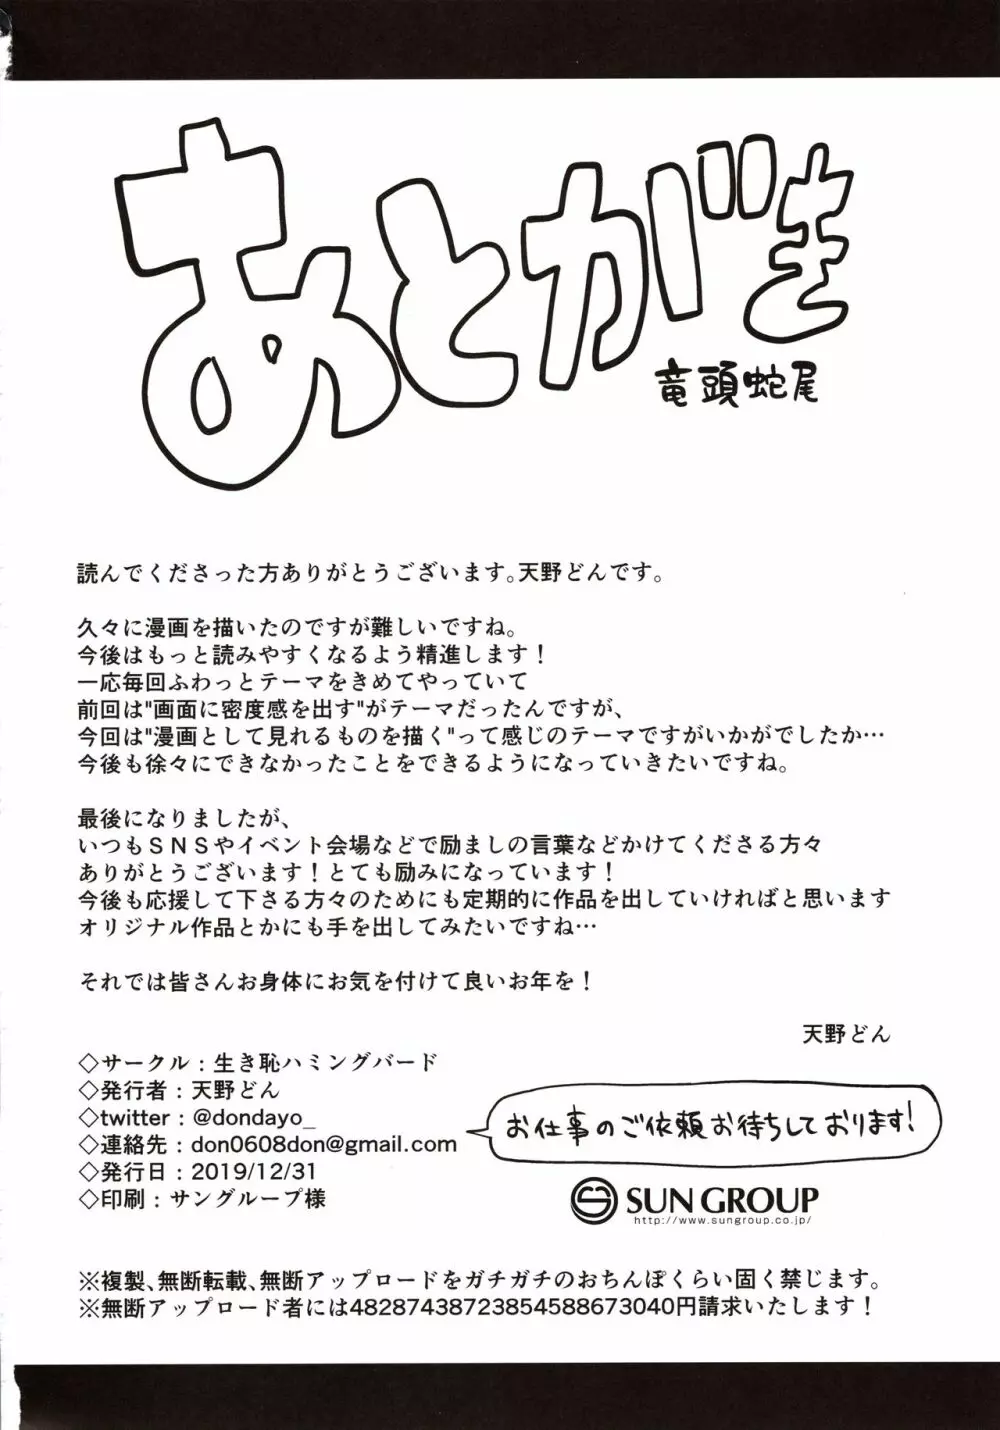 あとがき
竜頭蛇尾
読んでくださった方ありがとうございます。天野どんです。
久々に漫画を描いたのですが難しいですね。
今後はもっと読みやすくなるよう精進します！
一応毎回ふわっとテーマをきめてやっていて
前回は"画面に密度感を出す"がテーマだったんですが、
今回は"漫画として見れるものを描く"って感じのテーマですがいかがでしたか…
今後も徐々にできなかったことをできるようになっていきたいですね。
最後になりましたが、
いつもＳＮＳやイベント会場などで励ましの言葉などかけてくださる方々
ありがとうございます！とても励みになっています！
今後も応援して下さる方々のためにも定期的に作品を出していければと思います
オリジナル作品とかにも手を出してみたいですね…
それでは皆さんお身体にお気を付けて良いお年を！
天野どん
◇サークル：生き恥ハミングバード
◇発行者：天野どん
◇twitter：@dondayo_
◇連絡先：don0608don@gmail.com
◇発行日：2019/12/31
◇印刷：サングループ様
お仕事のご依頼お待ちしております！
SUN GROUP
http://www.sungroup.co.jp/
※複製、無断転載、無断アップロードをガチガチのおちんぽくらい固く禁じます。
※無断アップロード者には48287438723854588673040円請求いたします！